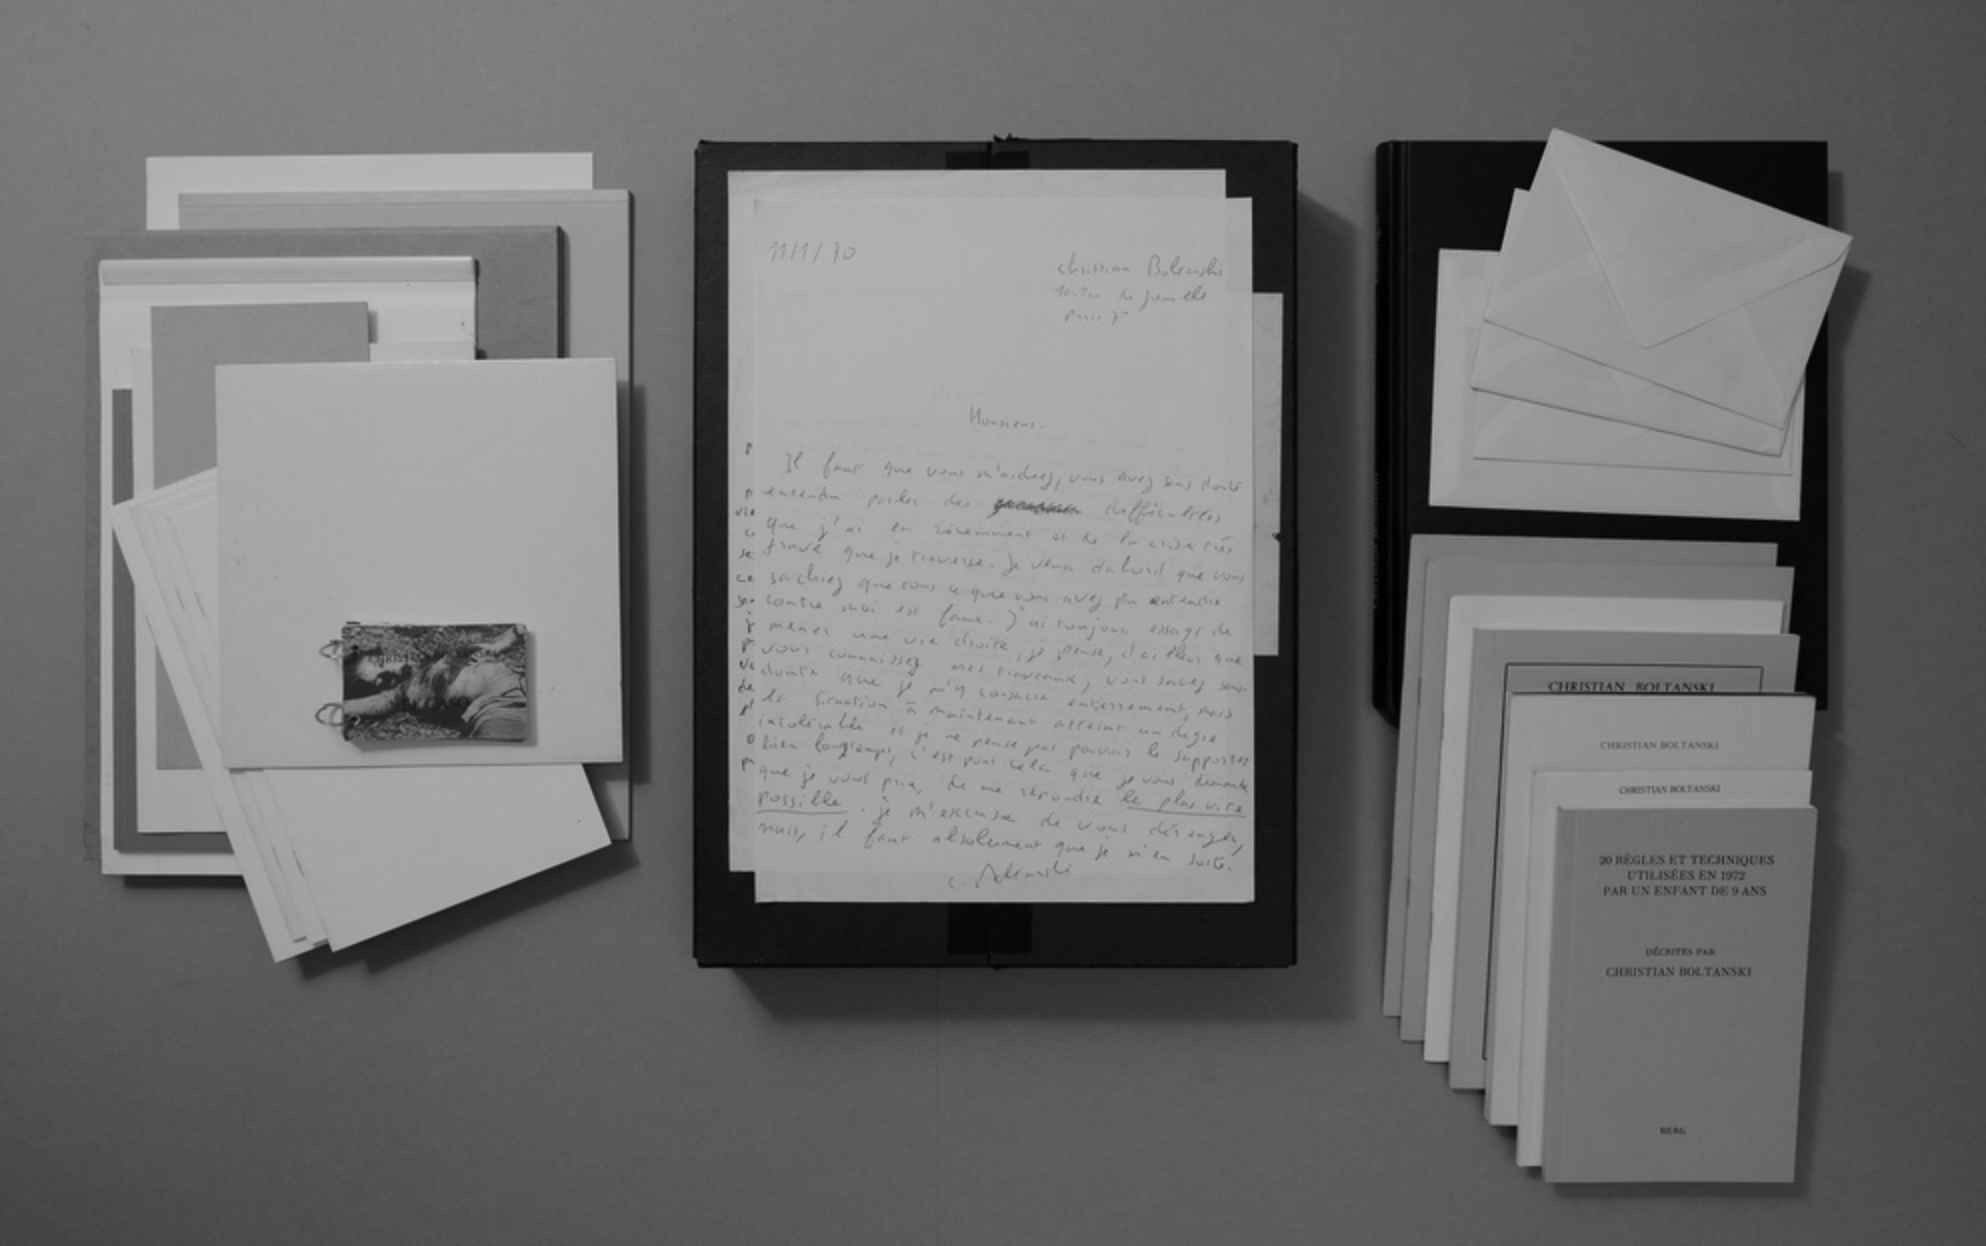 11/1/70
christian Boltanski
rue de grenelle
Paris 7e
Monsieur.
Il faut que vous m'aidiez, vous avez sans doute
entendu parler des difficultés
que j'ai eu récemment et de la crise très
grave que je traverse. Je veux d'abord que vous
sachiez que tous ce que vous avez pu entendre
contre moi est faux. J'ai toujours essayé de
mener une vie droite, je pense, d'ailleurs que
vous connaissez mes travaux, vous savez sans
doute que je m'y consacre entièrement, mais
la situation a maintenant atteint un degré
intolérable et je ne pense pas pouvoir le supporter
bien longtemps, c'est pour cela que je vous demande
que je vous prie, de me répondre le plus vite
possible. je m'escuse de vous déranger,
mais, il faut absolument que je m'en sorte.
C. Boltanski
CHRISTIAN BOLTANSKI
CHRISTIAN BOLTANSKI
CHRISTIAN BOLTANSKI
20 RÈGLES ET TECHNIQUES
UTILISÉES EN 1972
PAR UN ENFANT DE 9 ANS
DÉCRITES PAR
CHRISTIAN BOLTANSKI
BERG